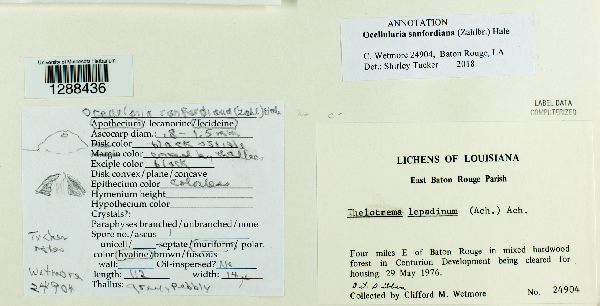 University of Minnesota Herbarium
1288436
ANNOTATION
Ocellularia sanfordiana (Zahlbr.) Hale
C. Wetmore 24904, Baton Rouge, LA
Det.: Shirley Tucker 2018
LABEL DATA
COMPUTERIZED
Ocellularia sanfordiana (Zahl) Hale
Apothecium/ lecanorine/lecideine)
Ascocarp diam.: .8 - 1.5 mm
Disk color black
Margin color covered by thallus
Exciple color black
Disk convex/plane/concave
Epithecium color colorless
Hymenium height
Hypothecium color
Crystals?:
Paraphyses branched/unbranched/none
Spore no./ascus 1
unicell/ -septate/muriform/ polar.
color hyaline/brown/fuscous
wall: Oil-inspersed? No
length: 112 width: 14 µ
Thallus: grey, pebbly
Tucker
notes
Wetmore
24904
LICHENS OF LOUISIANA
East Baton Rouge Parish
Thelotrema lepadinum (Ach.) Ach.
Four miles E of Baton Rouge in mixed hardwood
forest in Centurion Development being cleared for
housing 29 May 1976.
Collected by Clifford M. Wetmore No. 24904